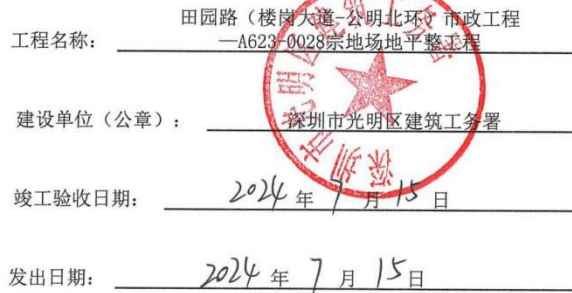 田园路（楼岗大道-公明北环）市政工程
工程名称：—A623-0028宗地场地平整工程
建设单位（公章）：深圳市光明区建筑工务署
竣工验收日期：2024年7月15日
发出日期：2024年7月15日